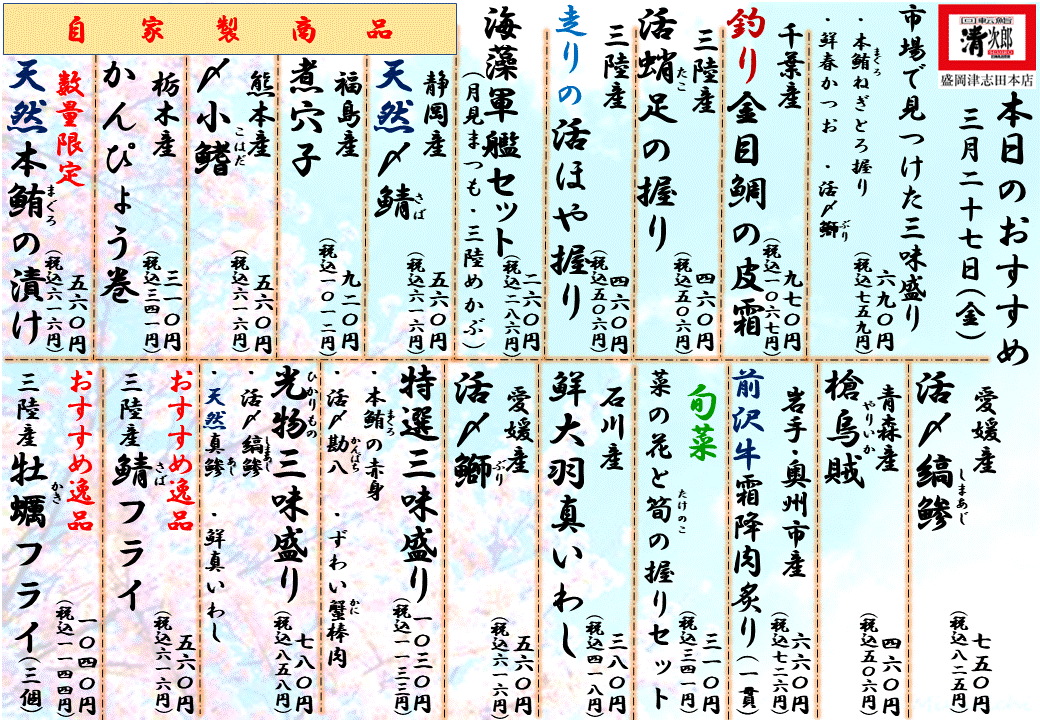 回転鮨
清次郎
盛岡津志田本店
本日のおすすめ
三月二十七日(金)
市場で見つけた三味盛り
・本鮪ねぎとろ握り
まぐろ
・鮮春かつお ・活〆鰤
ぶり
六九〇円
(税込七五九円)
千葉産
釣り金目鯛の皮霜
九七〇円
(税込一〇六七円)
三陸産
活蛸足の握り
たこ
四六〇円
(税込五〇六円)
三陸産
走りの活ほや握り
四六〇円
(税込五〇六円)
海藻軍艦セット
(月見まつも・三陸めかぶ)
二六〇円
(税込二八六円)
自家製商品
静岡産
天然〆鯖
さば
五六〇円
(税込六一六円)
福島産
煮穴子
九二〇円
(税込一〇一二円)
熊本産
〆小鰭
こはだ
五六〇円
(税込六一六円)
栃木産
かんぴょう巻
三一〇円
(税込三四一円)
数量限定
天然本鮪の漬け
まぐろ
五六〇円
(税込六一六円)
愛媛産
活〆縞鯵
しまあじ
七五〇円
(税込八二五円)
青森産
槍烏賊
やりいか
四六〇円
(税込五〇六円)
岩手・奥州市産
前沢牛霜降肉炙り(一貫)
六六〇円
(税込七二六円)
旬菜
菜の花と筍の握りセット
たけのこ
三一〇円
(税込三四一円)
石川産
鮮大羽真いわし
三八〇円
(税込四一八円)
愛媛産
活〆鰤
ぶり
五六〇円
(税込六一六円)
特選三味盛り
・本鮪の赤身
まぐろ
・活〆勘八 ・ずわい蟹棒肉
かんぱち
かに
一〇三〇円
(税込一一三三円)
光物三味盛り
ひかりもの
・活〆縞鯵
しまあじ
・天然真鯵 ・鮮真いわし
あじ
七八〇円
(税込八五八円)
おすすめ逸品
三陸産鯖フライ
さば
五六〇円
(税込六一六円)
おすすめ逸品
三陸産牡蠣フライ(三個)
かき
一〇四〇円
(税込一一四四円)